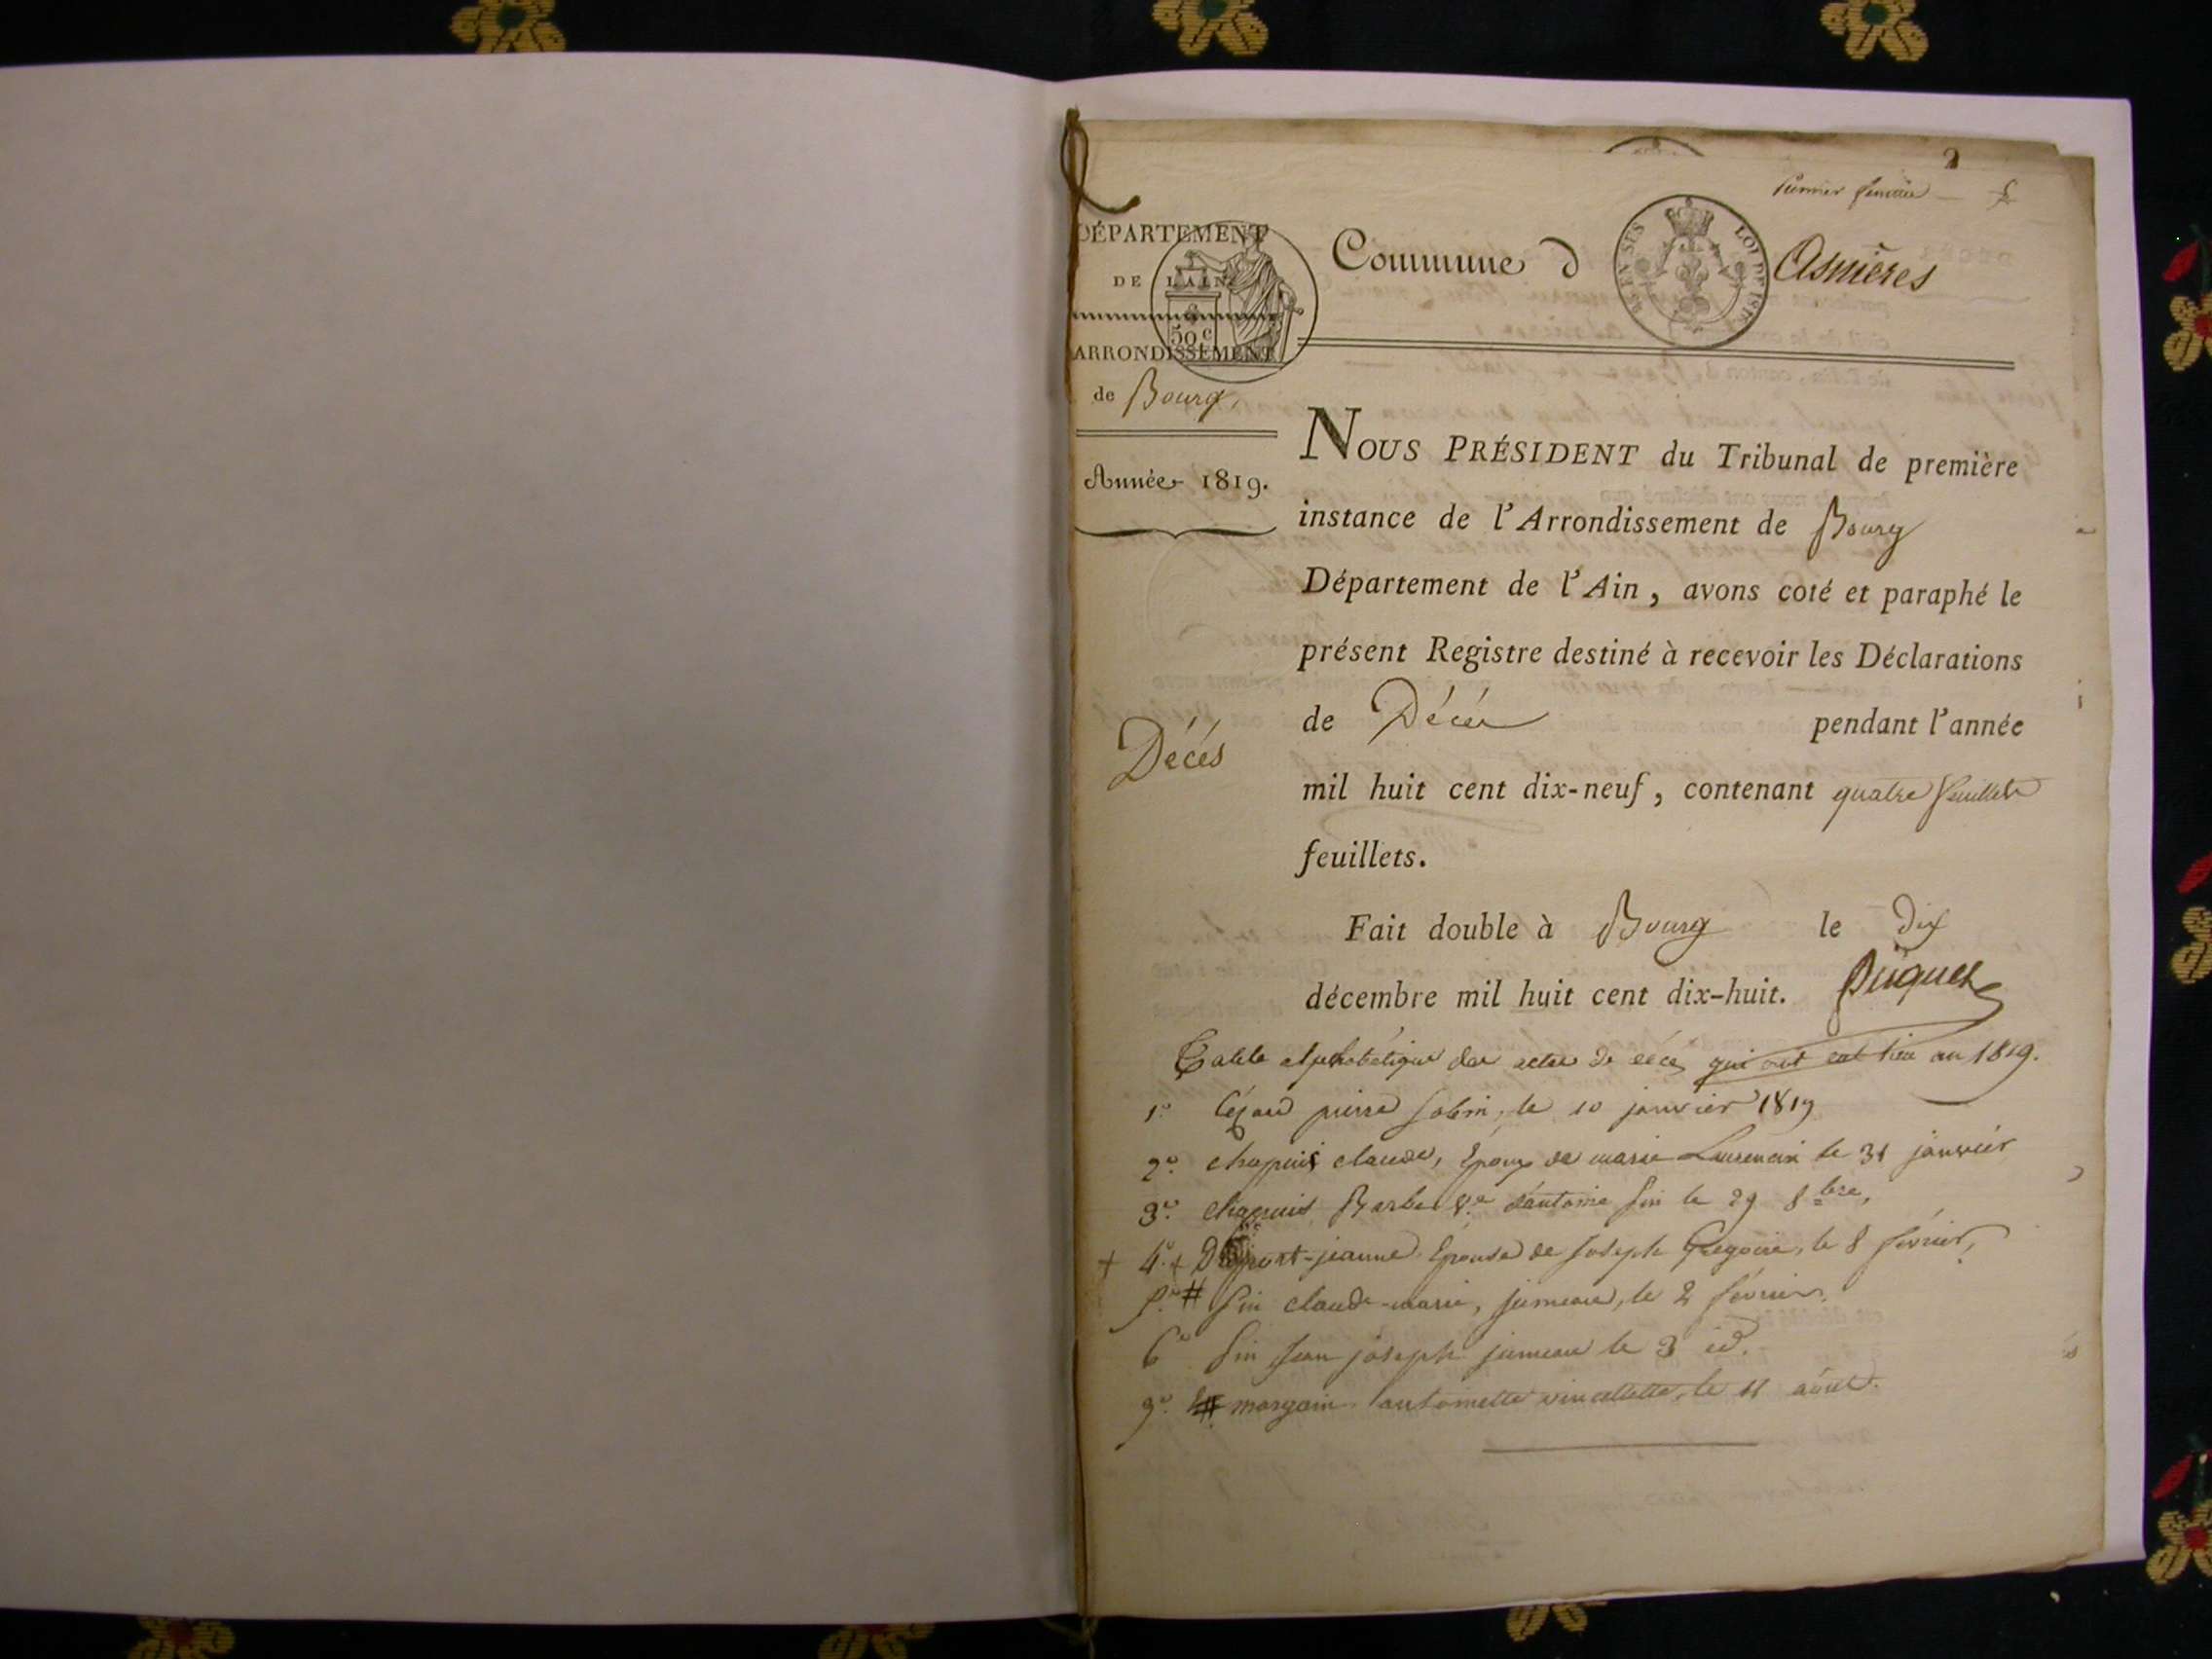 2
Premier feuillet
DÉPARTEMENT
DE L'AIN
50 c
ARRONDISSEMENT
de Bourg
Année 1819.
Décès
Commune d Asnières
LOI DE 1816
NOUS PRÉSIDENT du Tribunal de première
instance de l'Arrondissement de Bourg
Département de l'Ain, avons coté et paraphé le
présent Registre destiné à recevoir les Déclarations
de Décès pendant l'année
mil huit cent dix-neuf, contenant quatre feuillets
feuillets.
Fait double à Bourg le Dix
décembre mil huit cent dix-huit.
Table alphabétique des actes de décès qui ont eut lieu en 1819.
1° pierre le 10 janvier 1819
2° chapuis claude, Epoux de marie le 31 janvier
3° chapuis Barbe Ve d'antoine fin le 29 8bre,
+ 4° + jeanne Epouse de Joseph Gregoire, le 8 février,
5° # fin claude-marie, jumeau, le 2 février.
6° fin Jean joseph jumeau le 3 id.
9° # morgain antoinette le 11 août.